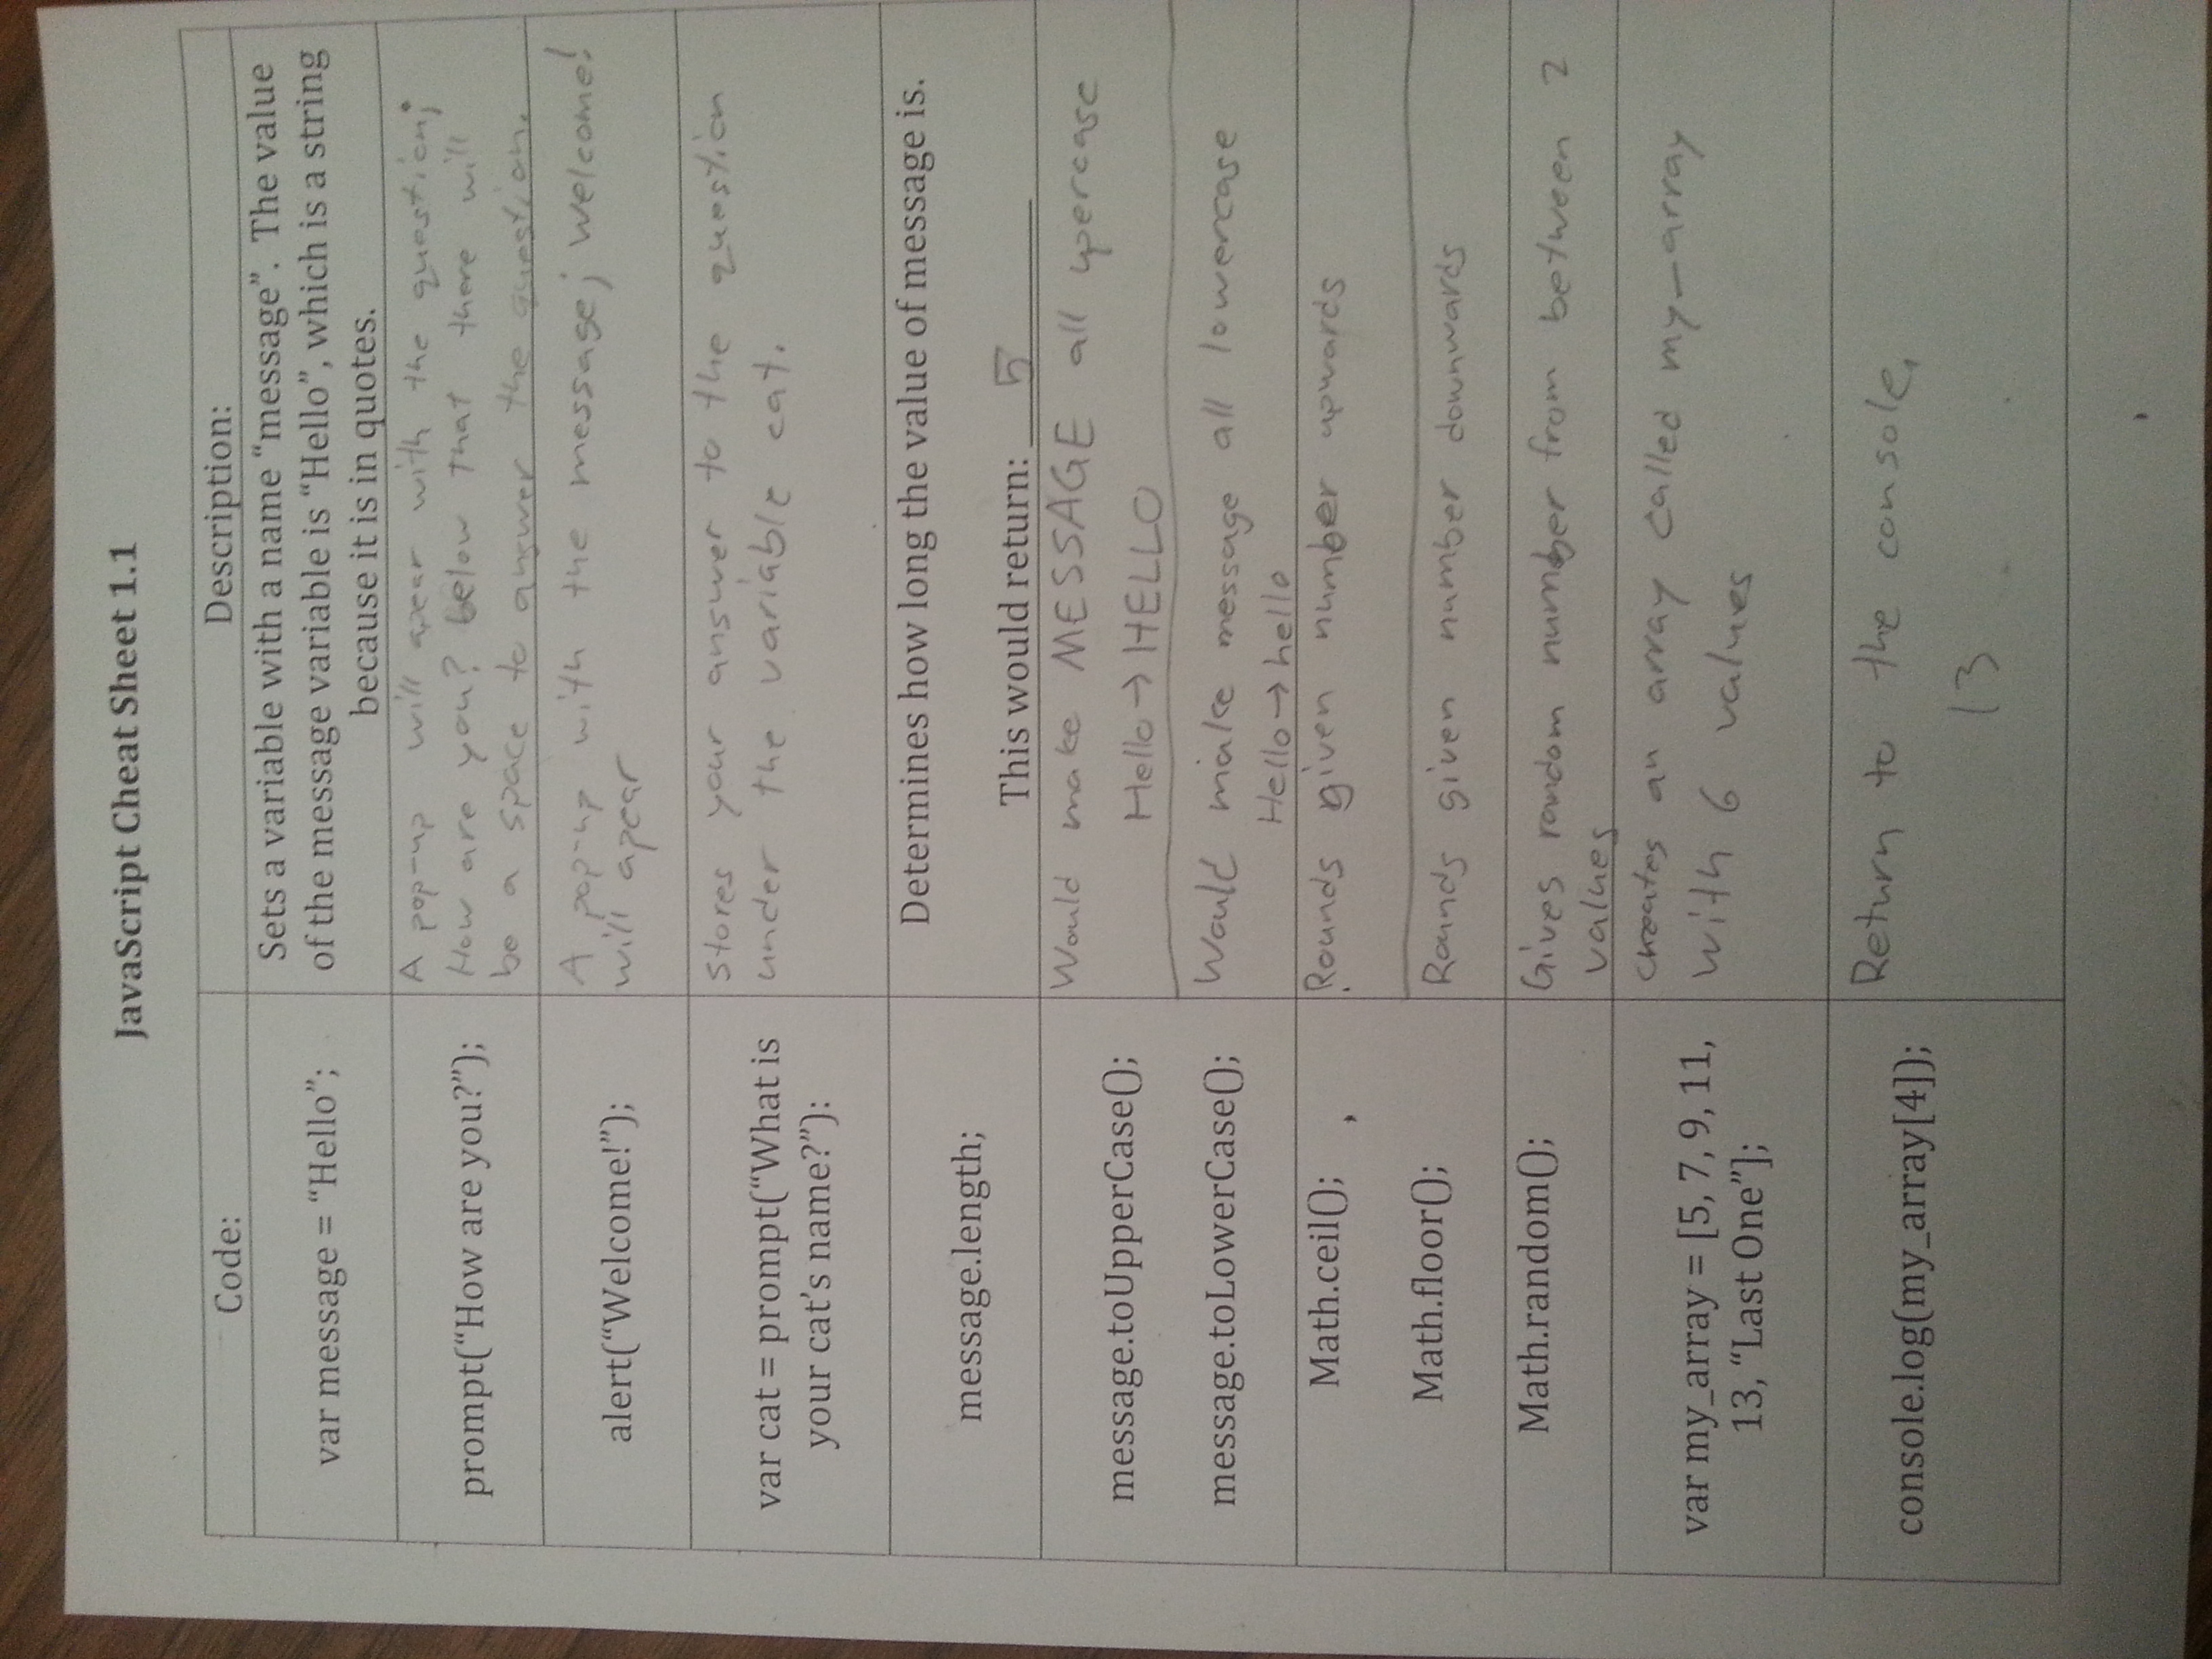 JavaScript Cheat Sheet 1.1
Code:
Description:
var message = “Hello”;
Sets a variable with a name “message”. The value
of the message variable is “Hello”, which is a string
because it is in quotes.
prompt(“How are you?”);
A pop-up will apear with the question;
How are you? Below that there will
be a space to answer the question.
alert(“Welcome!”);
A pop-up with the message; Welcome!
will apear
var cat = prompt(“What is
your cat’s name?”):
Stores your answer to the question
under the variable cat.
message.length;
Determines how long the value of message is.
This would return: 5
message.toUpperCase();
Would make MESSAGE all upercase
Hello → HELLO
message.toLowerCase();
Would make message all lowercase
Hello → hello
Math.ceil();
Rounds given number upwards
Math.floor();
Rounds given number downwards
Math.random();
Gives random number from between 2
values
var my_array = [5, 7, 9, 11,
13, “Last One”];
creates an array called my_array
with 6 values
console.log(my_array[4]);
Return to the console,
13